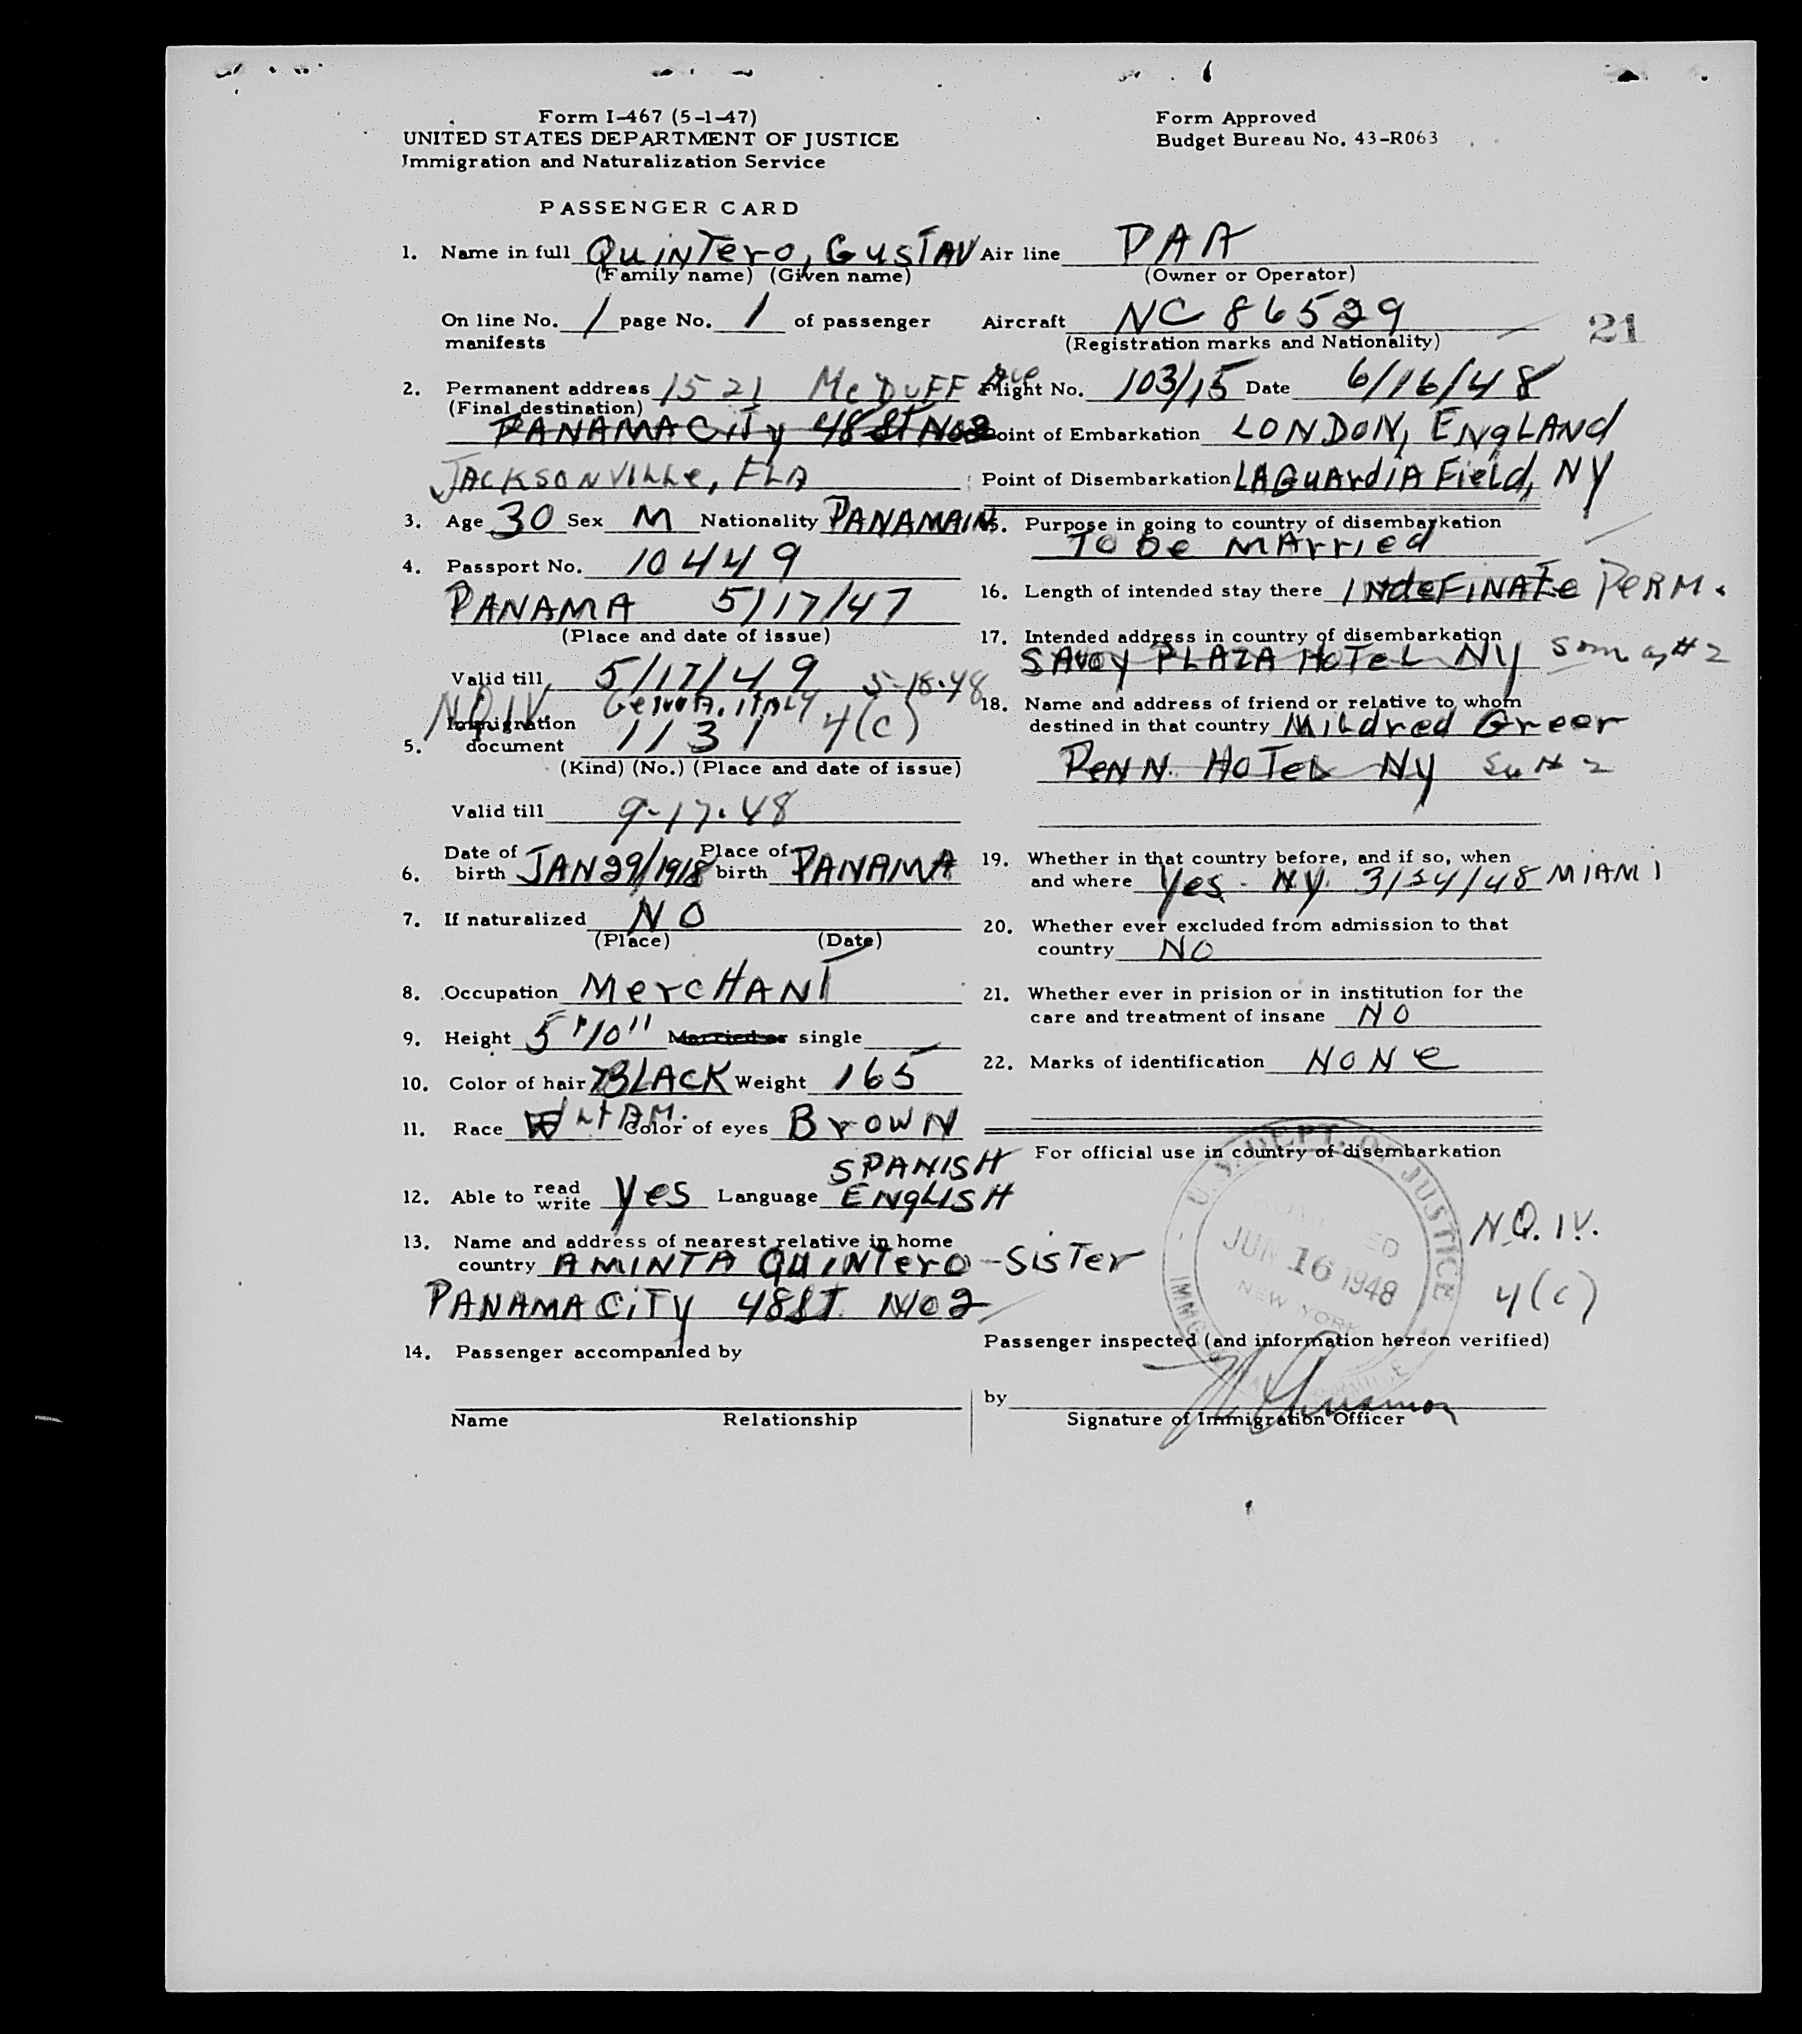 Form I-467 (5-1-47)
UNITED STATES DEPARTMENT OF JUSTICE
Immigration and Naturalization Service
Form Approved
Budget Bureau No. 43-R063
PASSENGER CARD
1. Name in full QuinTero, GusTAV
(Family name) (Given name)
On line No. 1 page No. 1 of passenger
manifests
2. Permanent address 1521 McDUFF Ave
(Final destination)
PANAMA CiTy 48 ST No2
JACKSONVILLe, FLA
3. Age 30 Sex M Nationality PANAMAIN
4. Passport No. 10449
PANAMA 5/17/47
(Place and date of issue)
Valid till 5/17/49
N.Q.I.V. GeNOA, ITALY 5-18-48
5. Immigration
document 1131 4(c)
(Kind) (No.) (Place and date of issue)
Valid till 9-17-48
6. Date of birth JAN 29/1918 Place of birth PANAMA
7. If naturalized NO
(Place) (Date)
8. Occupation MercHANT
9. Height 5'10" Married or single
10. Color of hair BLACK Weight 165
11. Race Color of eyes BrowN
12. Able to read write yes Language SPANISH
ENgLISH
13. Name and address of nearest relative in home
country AMINTA QuiNTero - SisTer
PANAMA CiTy 48 ST. No 2
14. Passenger accompanied by
Name Relationship
Air line PAA
(Owner or Operator)
Aircraft NC 86529
(Registration marks and Nationality)
21
Flight No. 103/15 Date 6/16/48
Point of Embarkation LONDON, ENgLANd
Point of Disembarkation LAGuArdiA Field, NY
15. Purpose in going to country of disembarkation
To be MArried
16. Length of intended stay there INdeFiNATe PERM.
17. Intended address in country of disembarkation
SAVoy PLAZA HoTeL Ny Same as #2
18. Name and address of friend or relative to whom
destined in that country MiLdred Greer
PeNN. HoTeL Ny
19. Whether in that country before, and if so, when
and where yes - Ny. 3/24/48 MIAMI
20. Whether ever excluded from admission to that
country NO
21. Whether ever in prision or in institution for the
care and treatment of insane NO
22. Marks of identification NoNe
For official use in country of disembarkation
U.S. DEPT. OF JUSTICE
JUN 16 1948
NEW YORK
N.Q.I.V.
4(c)
Passenger inspected (and information hereon verified)
by
Signature of Immigration Officer